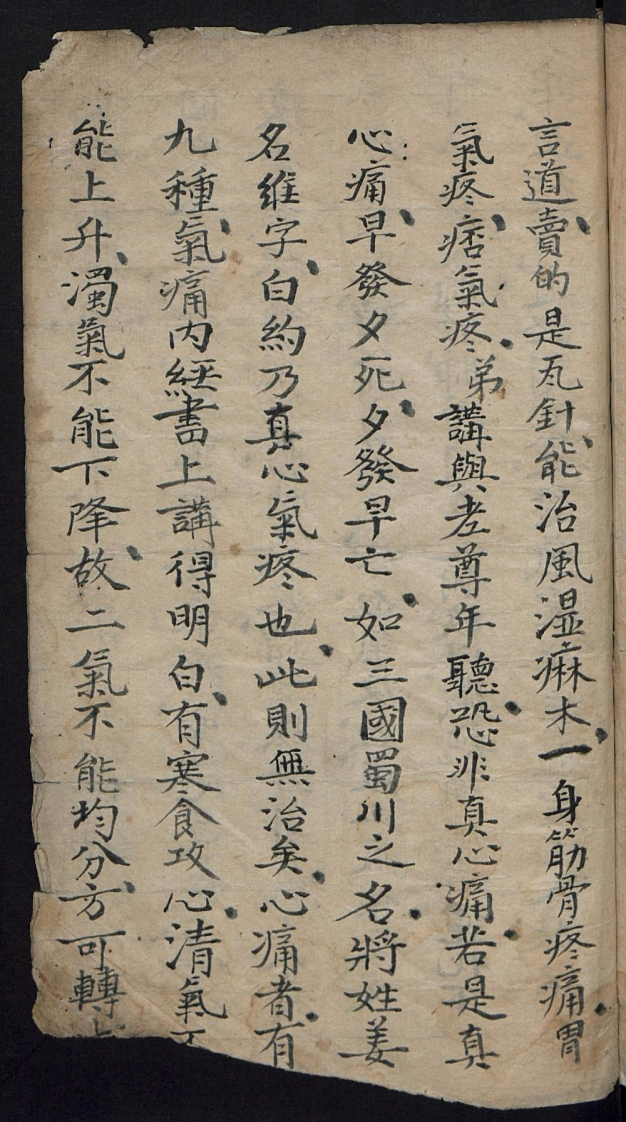 言道賣的是瓦針、能治風湿痳木、一身筋骨疼痛、胃
氣疼、痞氣疼、弟講與老尊年聽、恐非真心痛、若是真
心痛、早發夕死、夕發早亡、如三國蜀川之名、將姓姜
名維字、白約乃真心氣疼也、此則無治矣、心痛者、有
九種、氣痛内經書上講得明白、有寒食攻心、清氣不
能上升、濁氣不能下降、故二氣不能均分、方可轉